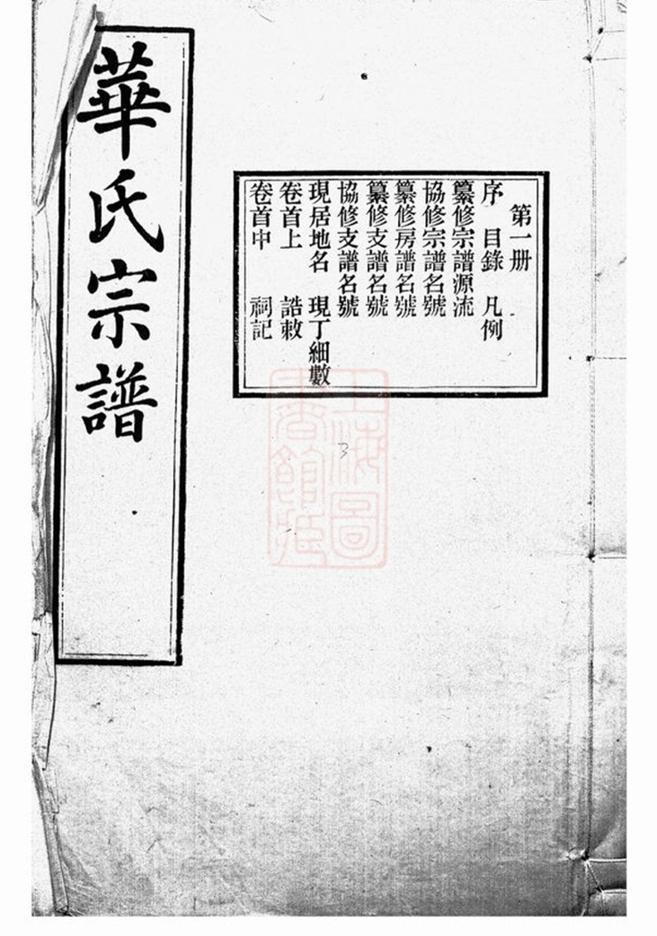 第一册
序 目錄 凡例
纂修宗譜源流
協修宗譜名號
纂修房譜名號
纂修支譜名號
協修支譜名號
現居地名 現丁細數
卷首上 誥敕
卷首中 祠記
華氏宗譜
上海圖
書館藏